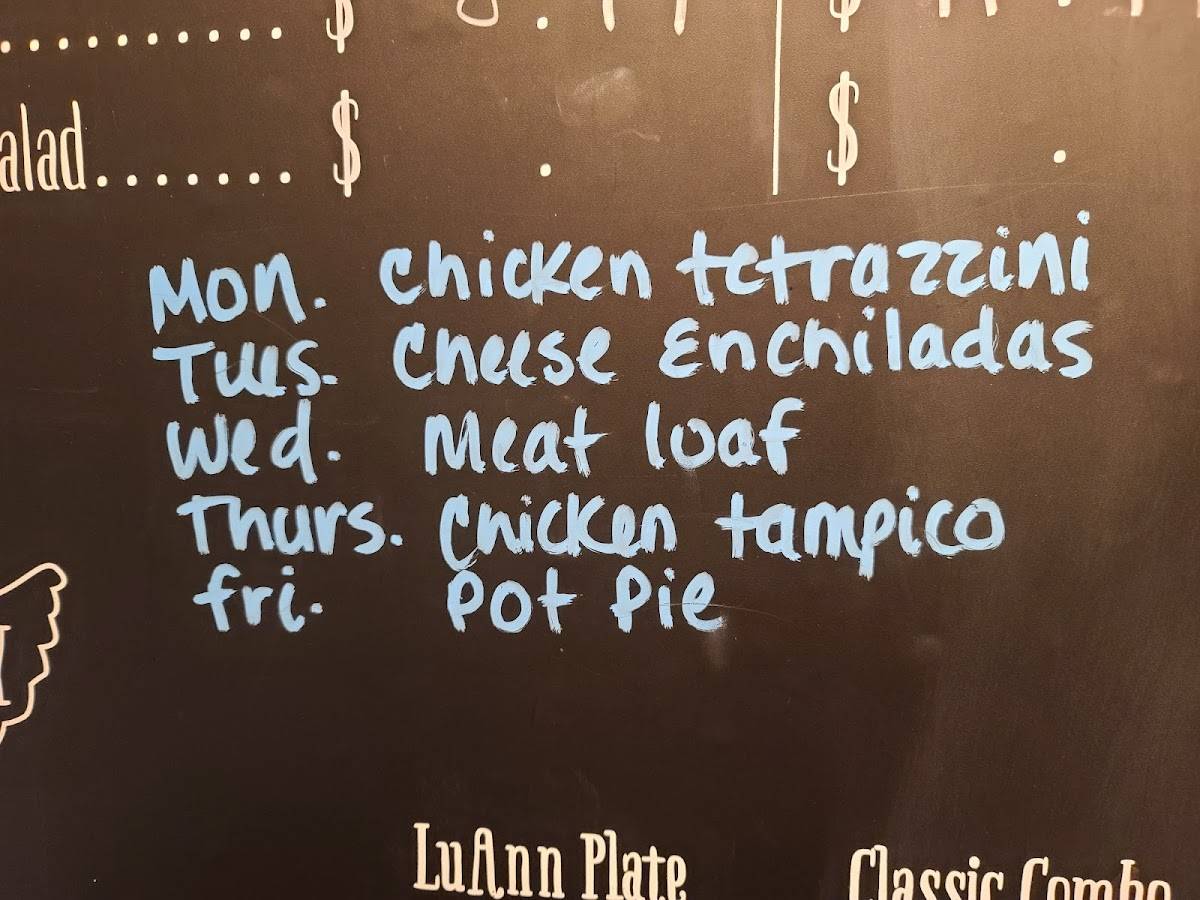 .......... $ . $ .
alad....... $ . $ .
Mon. Chicken tetrazzini
Tues. Cheese Enchiladas
Wed. Meat loaf
Thurs. Chicken tampico
fri. Pot Pie
LuAnn Plate Classic Combo